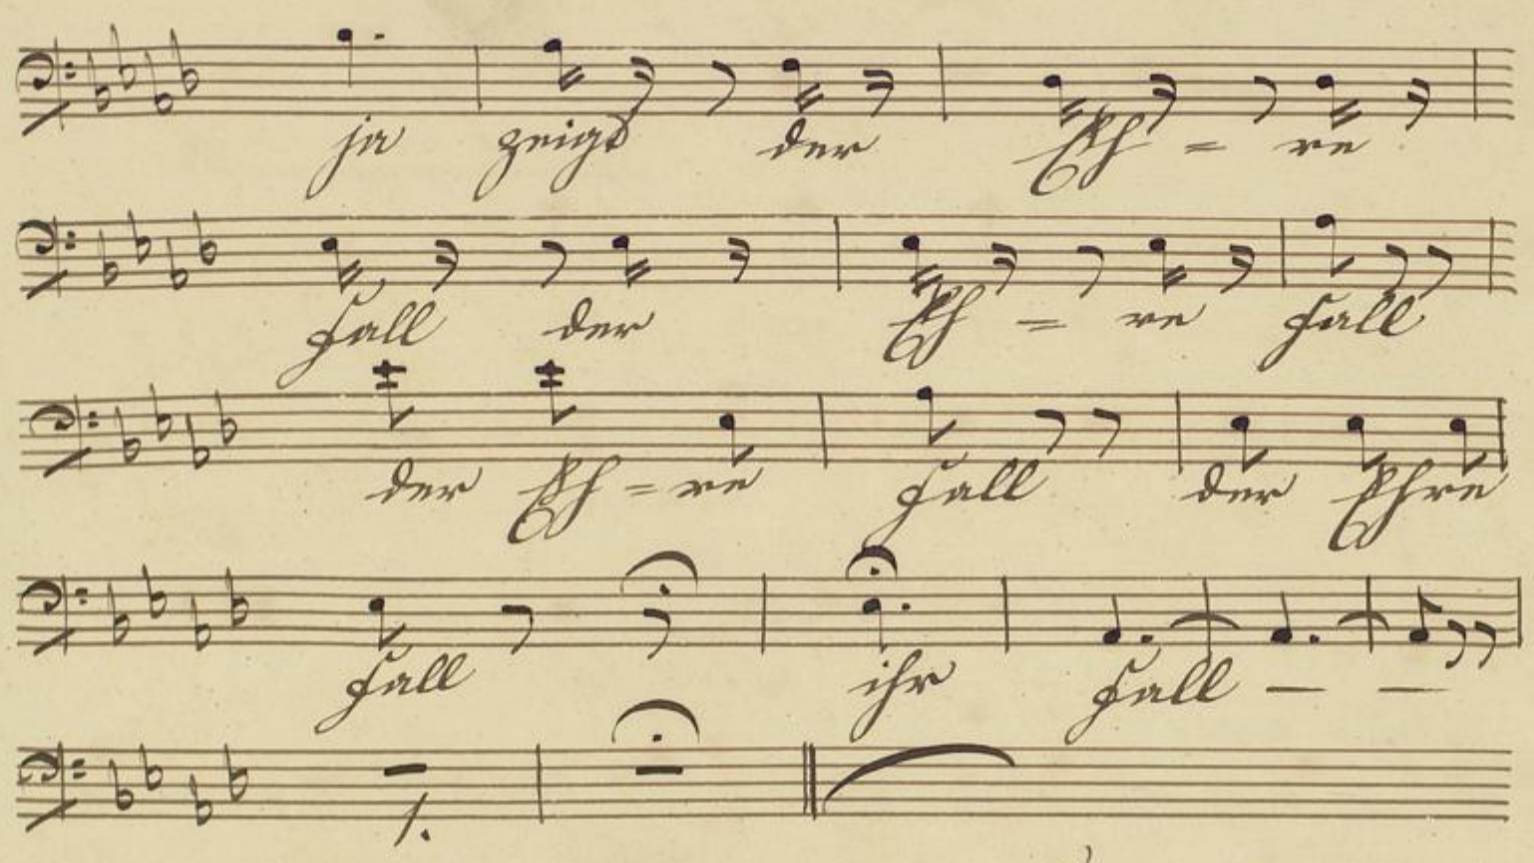 ja zeigt der Eh = re
Fall der Eh = re Fall
der Eh = re Fall der Ehre
Fall ihr Fall — —
1.